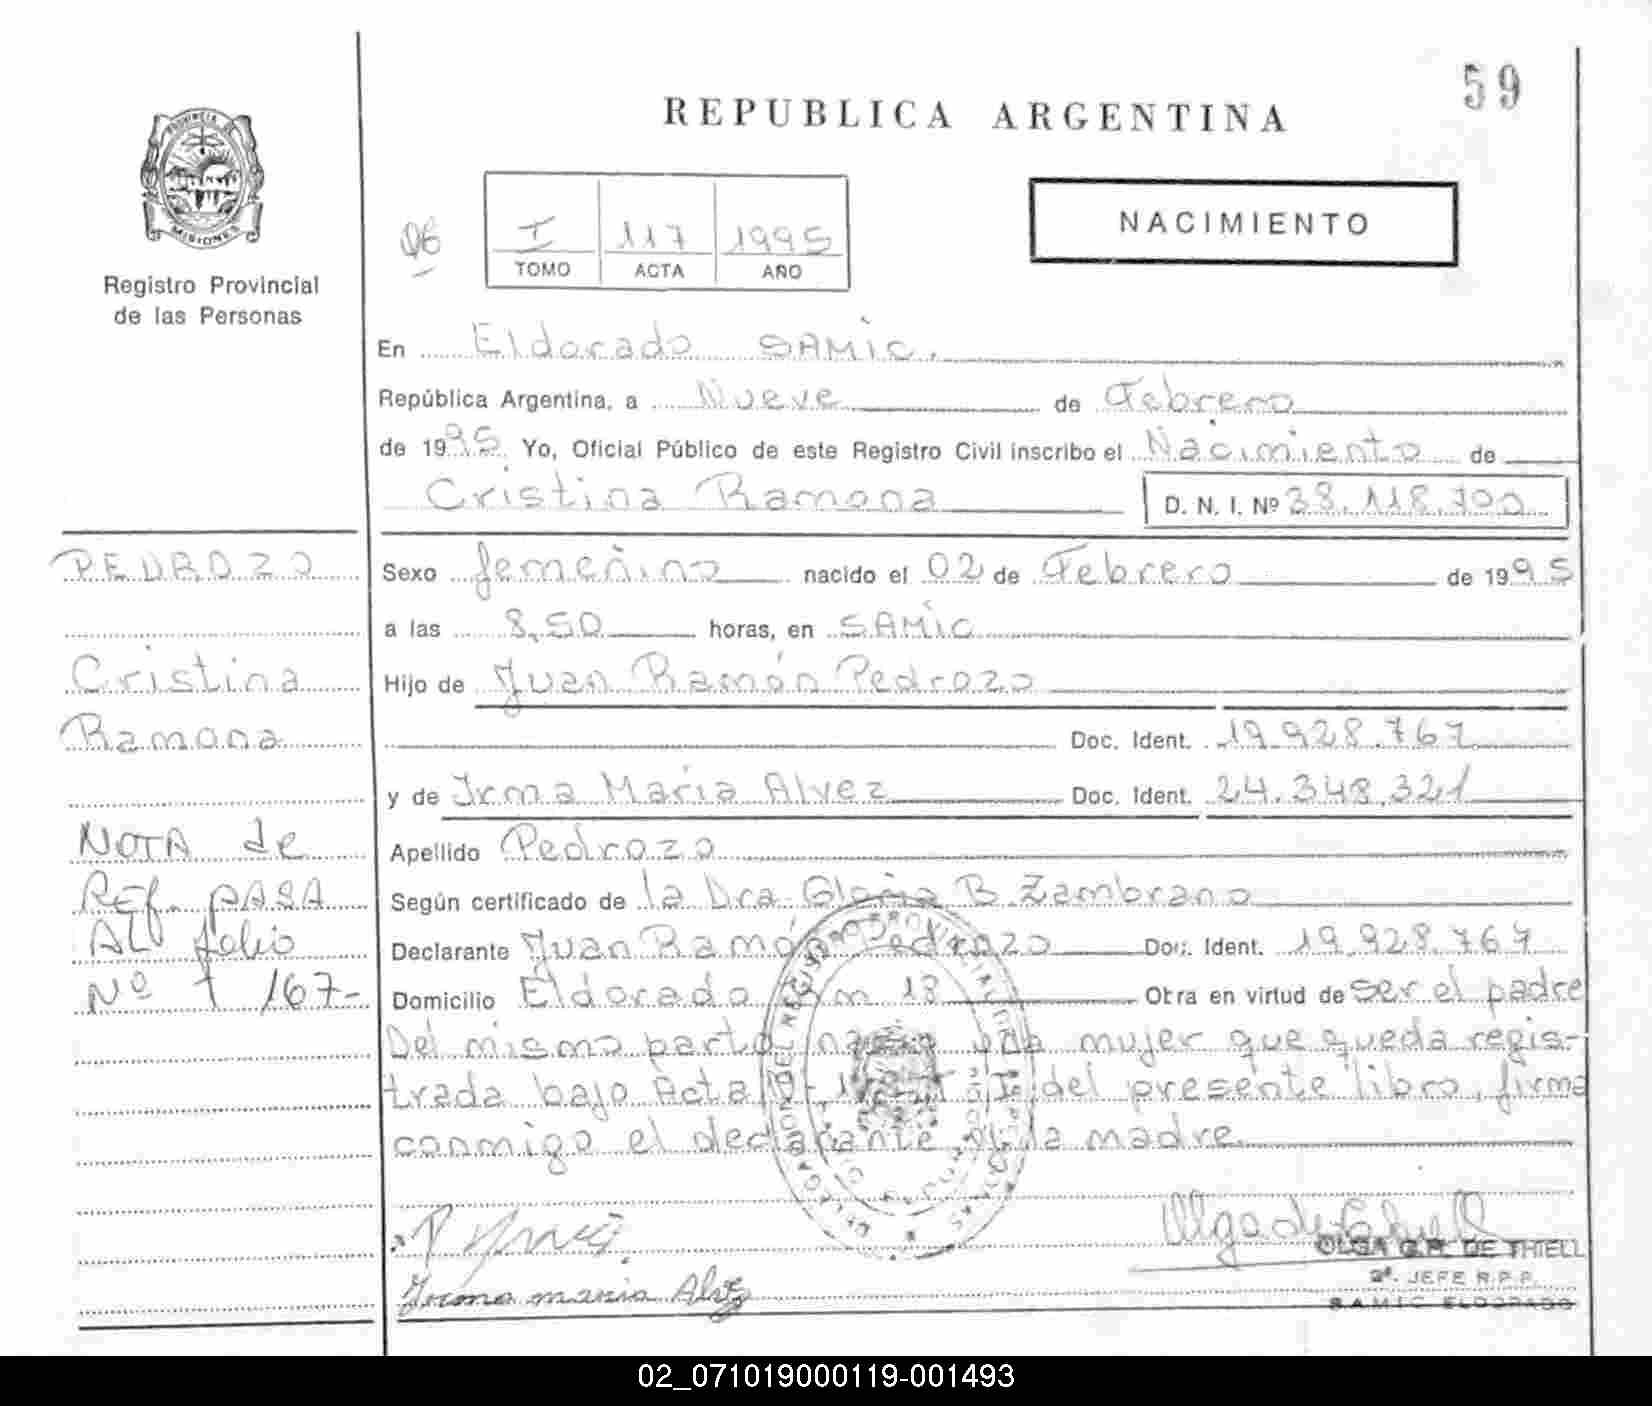 59
REPUBLICA ARGENTINA
PROVINCIA DE
MISIONES
Registro Provincial
de las Personas
06
I 117 1995
TOMO ACTA AÑO
NACIMIENTO
En Eldorado SAMic.
República Argentina, a Nueve de Febrero
de 1995 Yo, Oficial Público de este Registro Civil inscribo el Nacimiento de
Cristina Ramona D. N. I. Nº 38.118.700
PEDROZO
Cristina
Ramona
Sexo femenino nacido el 02 de Febrero de 1995
a las 8,50 horas, en SAMic
Hijo de Juan Ramón Pedrozo
Doc. Ident. 19.928.767
y de Irma Maria Alvez Doc. Ident. 24.348.321
NOTA de
REf. PASA
AL folio
Nº 167-
Apellido Pedrozo
Según certificado de la Dra Gloria B. Zambrano
Declarante Juan Ramón Pedrozo Doc. Ident. 19.928.767
Domicilio Eldorado Km 18 Otra en virtud de ser el padre
Del mismo parto nacio una mujer que queda regis-
trada bajo Acta del presente libro, firma
conmigo el declarante y la madre
Irma maria Alvez
OLGA G.R. DE THIELL
2º. JEFE R.P.P.
S.A.M.I.C ELDORADO
02_071019000119-001493